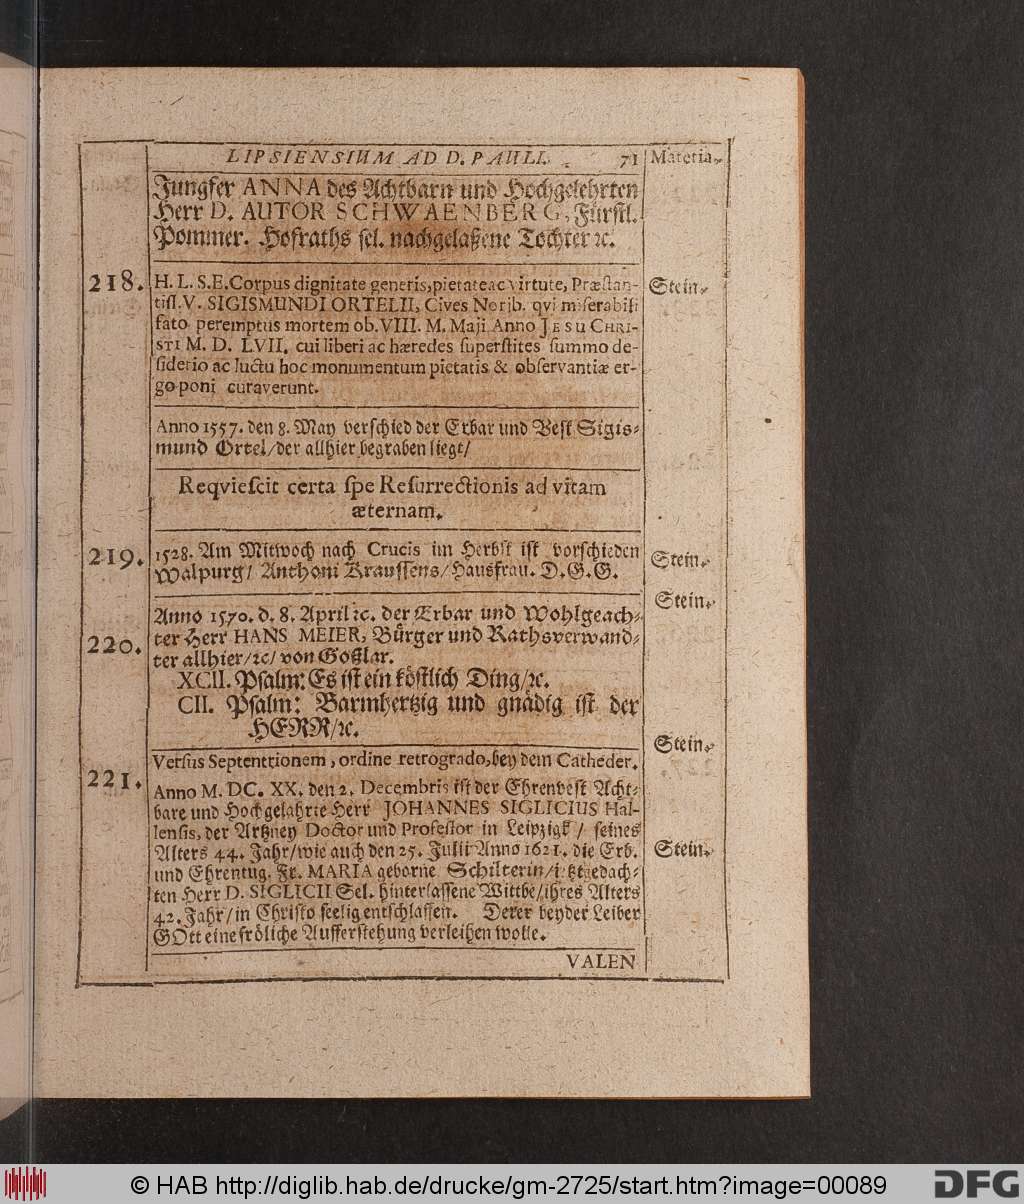 LIPSIENSIUM AD D. PAULI. 71 Materia.
Jungfer ANNA des Achtbarn und Hochgelehrten
Herr D. AUTOR SCHWAENBERG, Fürstl.
Pommer. Hofraths sel. nachgelaßene Tochter ꝛc.
218. H. L. S. E. Corpus dignitate generis, pietate ac virtute, Præstan- Stein.
tiss. V. SIGISMUNDI ORTELII, Cives Norib. qvi miserabili
fato peremptus mortem ob. VIII. M. Maji Anno JESU CHRI-
STI M. D. LVII. cui liberi ac hæredes superstites summo de-
siderio ac luctu hoc monumentum pietatis & observantiæ er-
go poni curaverunt.
Anno 1557. den 8. May verschied der Erbar und Vest Sigis-
mund Ortel/der allhier begraben liegt/
Reqviescit certa spe Resurrectionis ad vitam
æternam.
219. 1528. Am Mitwoch nach Crucis im Herbst ist vorschieden Stein.
Walpurg/ Anthoni Kraussens/Hausfrau. D. G. G.
Stein.
Anno 1570. d. 8. April ꝛc. der Erbar und Wohlgeach-
220. ter Herr HANS MEIER, Bürger und Rathsverwand-
ter allhier/ꝛc/ von Goßlar.
XCII. Psalm: Es ist ein köstlich Ding/ꝛc.
CII. Psalm: Barmhertzig und gnädig ist der
HERR/ꝛc.
Stein.
Versus Septentrionem, ordine retrogrado, bey dem Catheder.
221. Anno M. DC. XX. den 2. Decembris ist der Ehrenvest Acht-
bare und Hochgelahrte Herr JOHANNES SIGLICIUS Hal-
lensis, der Artzney Doctor und Professor in Leipzigk/ seines
Alters 44. Jahr/wie auch den 25. Julii Anno 1621. die Erb. Stein.
und Ehrentug. Fr. MARIA geborne Schilterin/jetztgedach-
ten Herr D. SIGLICII Sel. hinterlassene Wittbe/ihres Alters
42. Jahr/in Christo seelig entschlaffen. Derer beyder Leiber
GOtt eine fröliche Aufferstehung verleihen wolle.
VALEN
© HAB http://diglib.hab.de/drucke/gm-2725/start.htm?image=00089
DFG